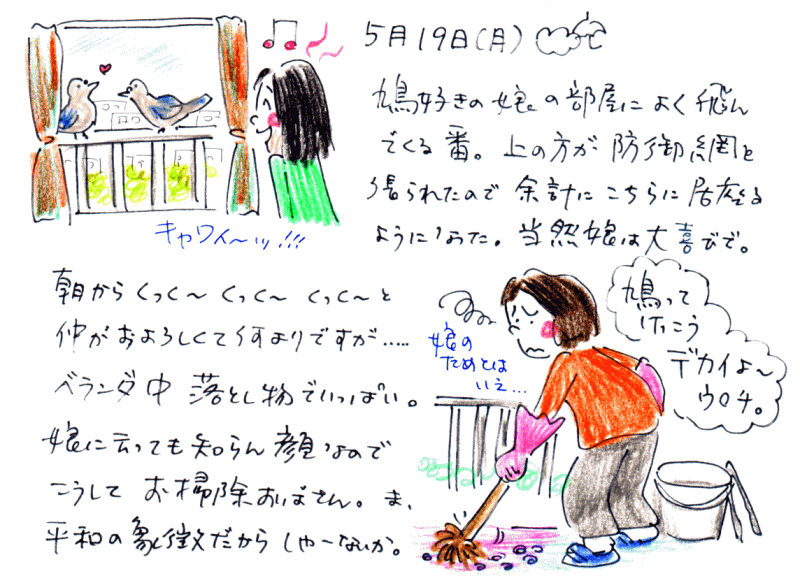 5月19日(月)
鳩好きの娘の部屋によく飛ん
でくる番。上の方が防御網を
張られたので余計にこちらに居座る
ようになった。当然娘は大喜びで。
キャワイ〜ッ!!!
朝からくっく〜くっく〜くっく〜と
仲がおよろしくて何よりですが……
ベランダ中落とし物でいっぱい。
娘に云っても知らん顔なので
こうしてお掃除おばさん。ま、
平和の象徴だからしゃーないか。
娘の
ためとは
いえ…
鳩って
けっこう
デカイよ〜
ウ〇チ。